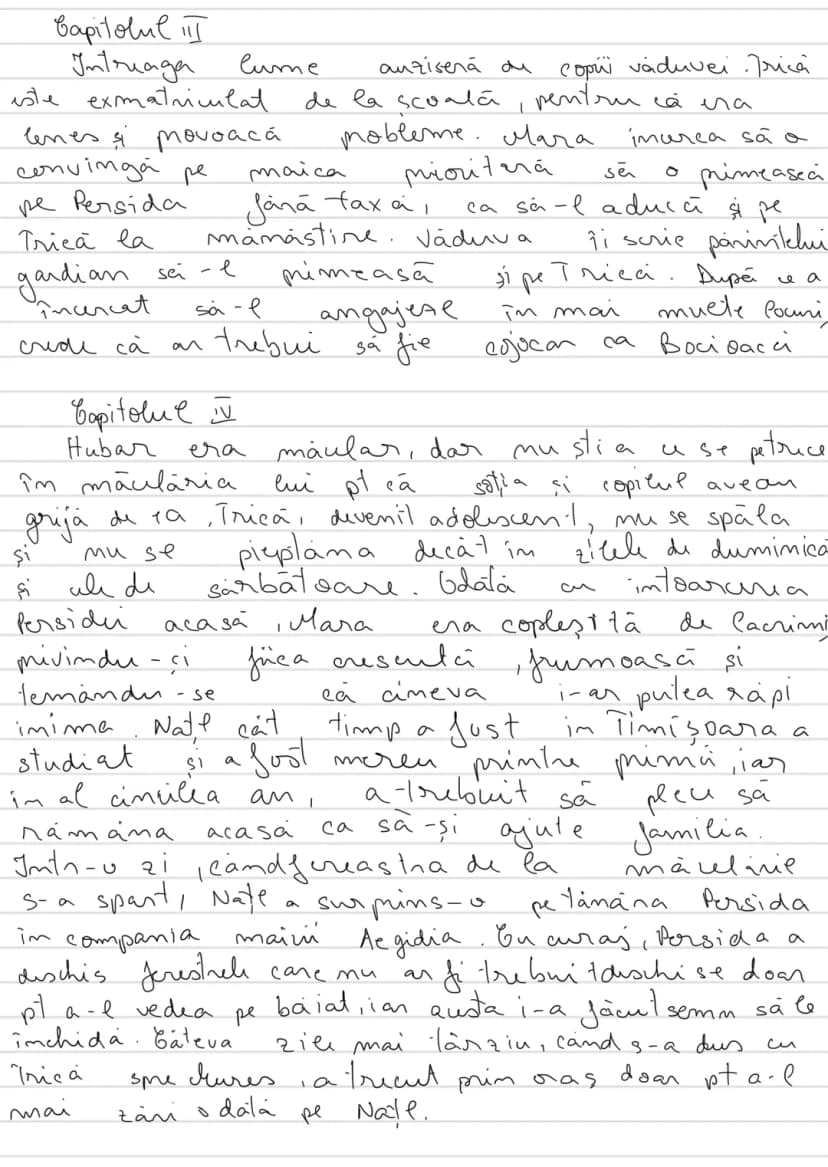 Capitolul III
Întreaga lume auziseră de copiii văduvei. Trică
este exmatriculat de la școală, pentru că era
lenes și provoacă probleme. Mara încurea să o
convingă pe maica priorițeră să o primească
pe Persida fără taxă, ca să-l aducă și pe
Trică la mămăstire. Văduva îi scrie părintelui
gardian să-l primeasă și pe Trică. După ce a
încercat să-l angajese în mai multe locuri,
crede că ar trebui să fie cojocar ca Bocioacă
Capitolul IV
Hubăr era măcelar, dar nu știa ce se petrece
în măcelăria lui pt că soția și copilul aveau
grijă de ea. Trică, devenit adolescent, nu se spăla
și nu se pieptăna decât în zilele de duminică
și cele de sărbătoare. Odată cu întoarcerea
Persidei acasă, Mara era copleșită de lacrimi
privindu-și fiica crescută, frumoasă și
temându-se că cineva i-ar putea răpi
inima. Națl cât timp a fost in Timișoara a
studiat și a fost mereu printre primii, iar
in al cincilea an, a trebuit să plece să
rămână acasă ca să-și ajute familia.
Într-o zi, când fereastra de la măcelărie
s-a spart, Națl a surprins-o pe tânăra Persida
în compania maicii Aegidia. Cu curaj, Persida a
deschis ferestrele care nu ar fi trebuit deschise doar
pt a-l vedea pe băiat, iar acesta i-a făcut semn să le
închidă. Câteva zile mai târziu, când s-a dus cu
Trică spre Mures, a trecut prin oraș doar pt a-l
mai zări odată pe Națl.